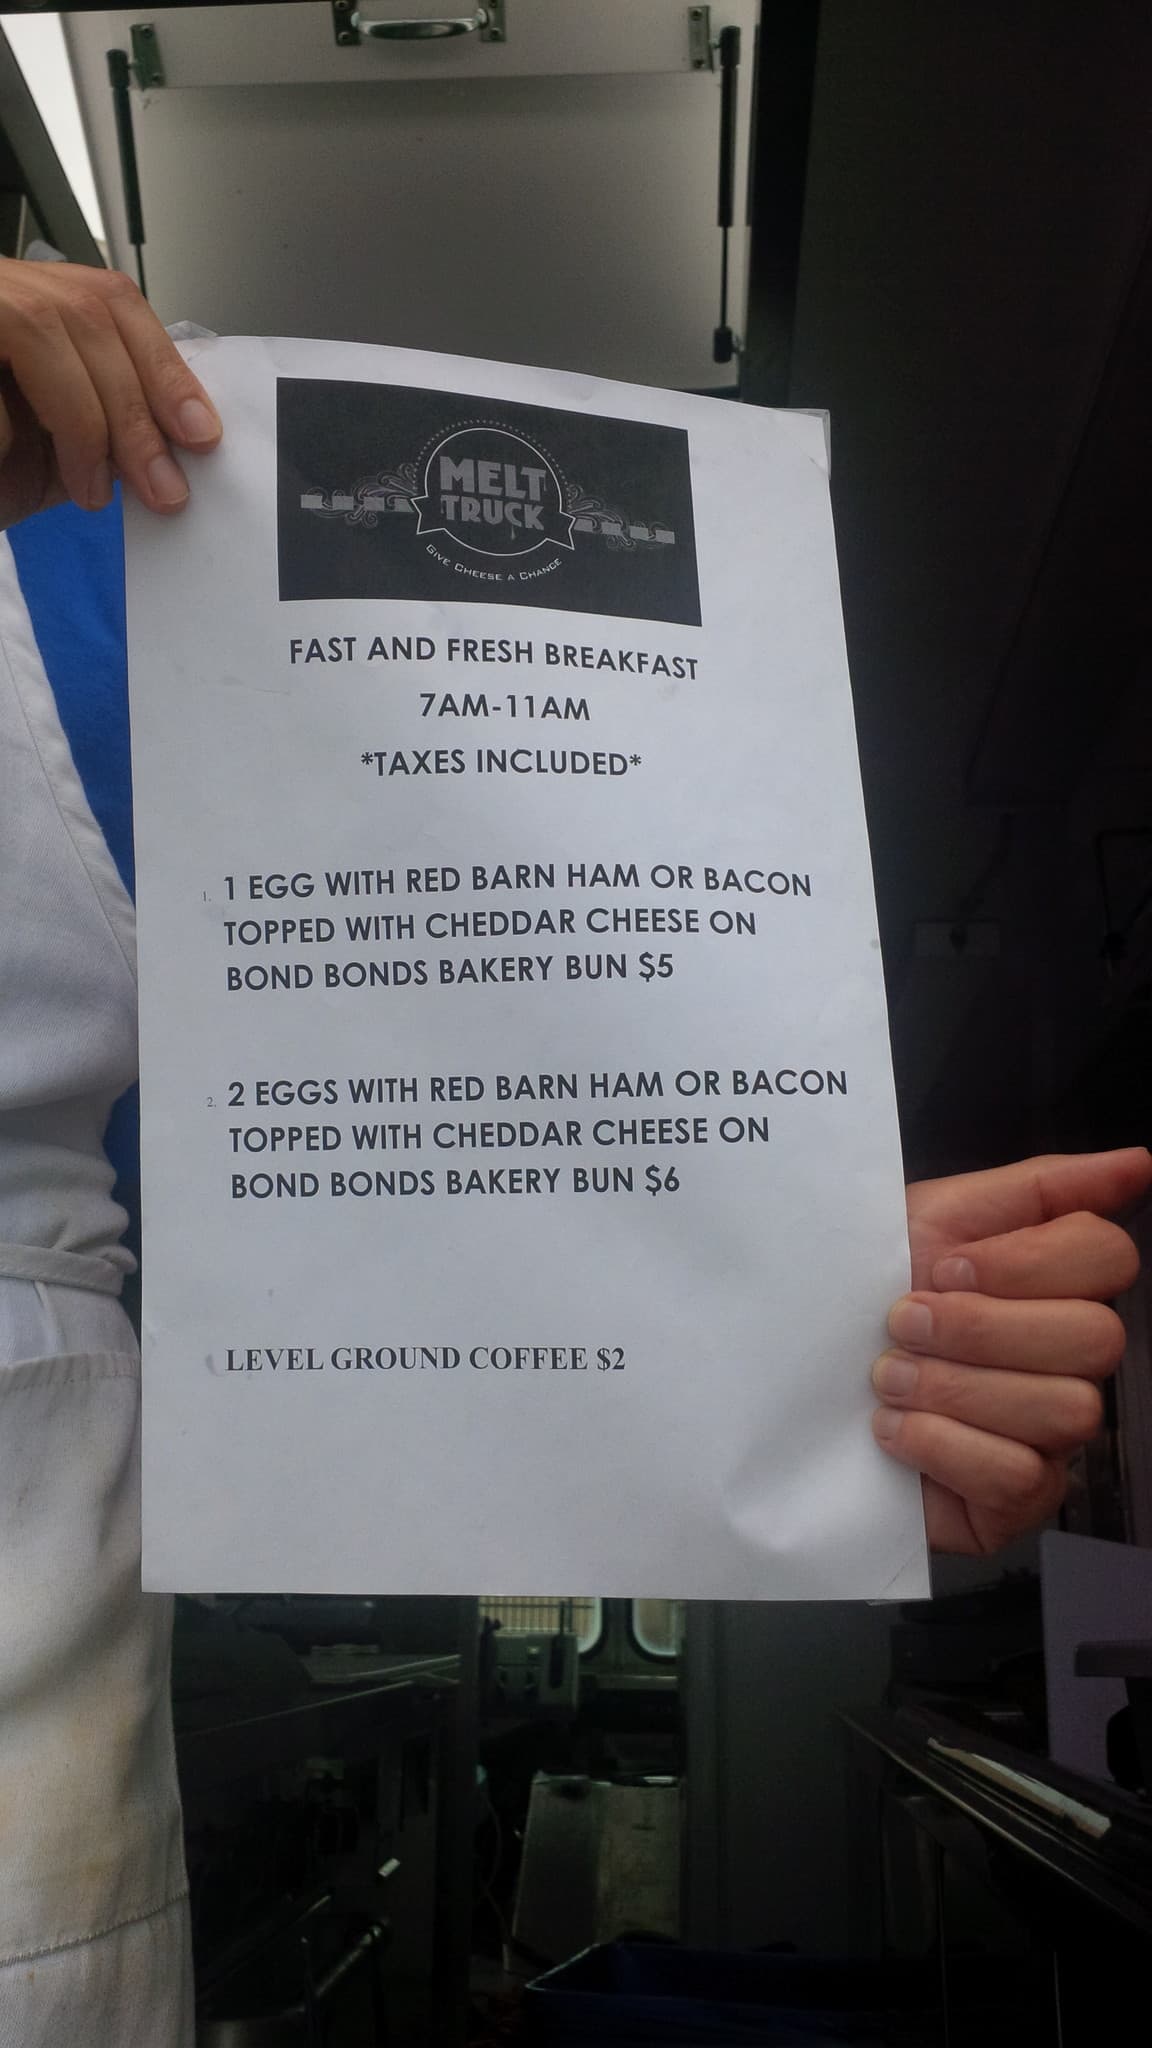 MELT
TRUCK
GIVE CHEESE A CHANCE
FAST AND FRESH BREAKFAST
7AM-11AM
*TAXES INCLUDED*
1. 1 EGG WITH RED BARN HAM OR BACON
TOPPED WITH CHEDDAR CHEESE ON
BOND BONDS BAKERY BUN $5
2. 2 EGGS WITH RED BARN HAM OR BACON
TOPPED WITH CHEDDAR CHEESE ON
BOND BONDS BAKERY BUN $6
LEVEL GROUND COFFEE $2